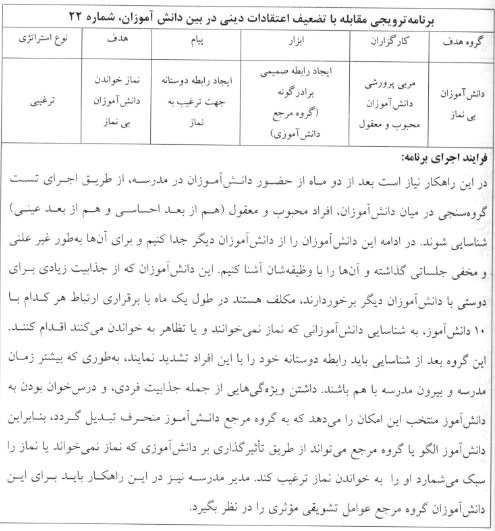 برنامه ترویجی مقابله با تضعیف اعتقادات دینی در بین دانش آموزان، شماره ۲۲
گروه هدف	کارگزاران	ابزار	پیام	هدف	نوع استراتژی
دانش‌آموزان بی نماز	مربی پرورشی دانش‌آموزان محبوب و معقول	ایجاد رابطه صمیمی برادرگونه (گروه مرجع دانش‌آموزی)	ایجاد رابطه دوستانه جهت ترغیب به نماز	نماز خواندن دانش‌آموزان بی نماز	ترغیبی
فرایند اجرای برنامه:
در این راهکار نیاز است بعد از دو ماه از حضور دانش‌آمـوزان در مدرسـه، از طریـق اجـرای تسـت
گروه‌سنجی در میان دانش‌آموزان، افراد محبوب و معقول (هـم از بعـد احساسـی و هـم از بعـد عینـی)
شناسایی شوند. در ادامه این دانش‌آموزان را از دانش‌آموزان دیگر جدا کنیم و برای آن‌ها به‌طور غیر علنی
و مخفی جلساتی گذاشته و آن‌ها را با وظیفه‌شان آشنا کنیم. این دانش‌آموزان که از جذابیت زیادی بـرای
دوستی با دانش‌آموزان دیگر برخوردارند، مکلف هستند در طول یک ماه با برقراری ارتباط هر کدام بـا
۱۰ دانش‌آموز، به شناسایی دانش‌آموزانی که نماز نمی‌خوانند و یا تظاهر به خواندن می‌کنند اقـدام کننـد.
این گروه بعد از شناسایی باید رابطه دوستانه خود را با این افراد تشدید نمایند، به‌طوری که بیشتر زمـان
مدرسه و بیرون مدرسه با هم باشند. داشتن ویژگی‌هایی از جمله جذابیت فردی، و درس‌خوان بودن بـه
دانش‌آموز منتخب این امکان را می‌دهد که به گروه مرجع دانـش‌آمـوز منحـرف تبـدیل گـردد، بنـابراین
دانش‌آموز الگو یا گروه مرجع می‌تواند از طریق تأثیرگذاری بر دانش‌آموزی که نماز نمی‌خواند یا نماز را
سبک می‌شمارد او را به خواندن نماز ترغیب کند. مدیر مدرسـه نیـز در ایـن راهکـار بایـد بـرای ایـن
دانش‌آموزان گروه مرجع عوامل تشویقی مؤثری را در نظر بگیرد.